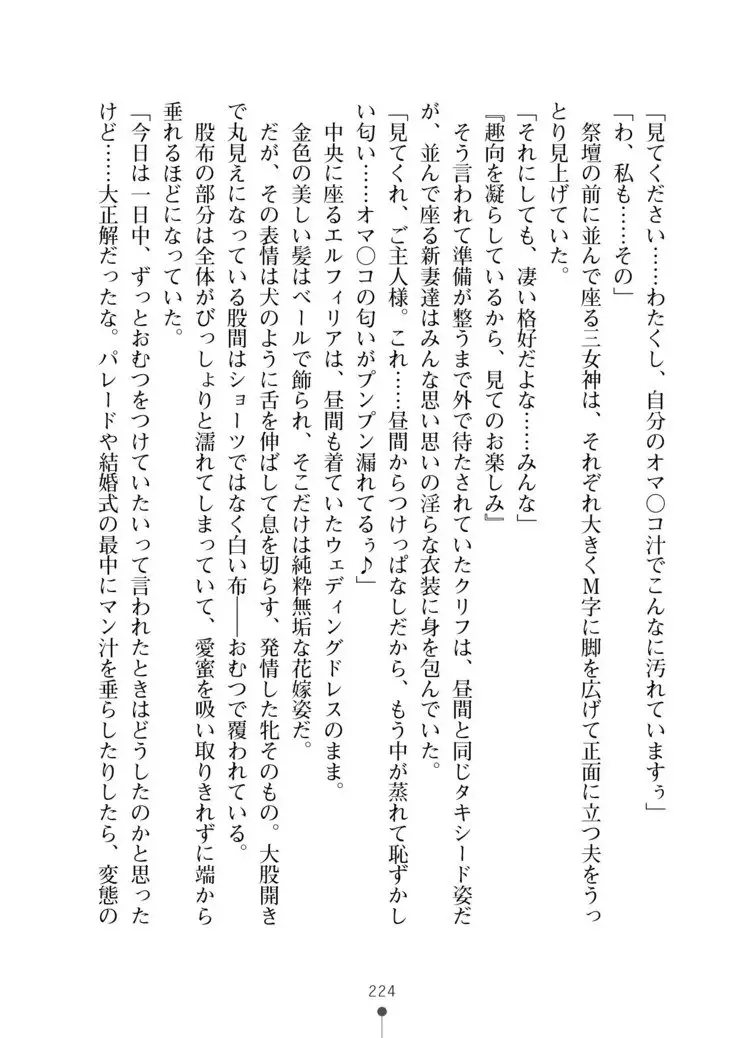 「見てください……わたくし、自分のオマ〇コ汁でこんなに汚れていますぅ」
「わ、私も……その」
　祭壇の前に並んで座る三女神は、それぞれ大きくM字に脚を広げて正面に立つ夫をうっ
とり見上げていた。
「それにしても、凄い格好だよな……みんな」
『趣向を凝らしているから、見てのお楽しみ』
　そう言われて準備が整うまで外で待たされていたクリフは、昼間と同じタキシード姿だ
が、並んで座る新妻達はみんな思い思いの淫らな衣装に身を包んでいた。
「見てくれ、ご主人様。これ……昼間からつけっぱなしだから、もう中が蒸れて恥ずかし
い匂い……オマ〇コの匂いがプンプン漏れてるぅ♪」
　中央に座るエルフィリアは、昼間も着ていたウェディングドレスのまま。
　金色の美しい髪はベールで飾られ、そこだけは純粋無垢な花嫁姿だ。
　だが、その表情は犬のように舌を伸ばして息を切らす、発情した牝そのもの。大股開き
で丸見えになっている股間はショーツではなく白い布――おむつで覆われている。
　股布の部分は全体がびっしょりと濡れてしまっていて、愛蜜を吸い取りきれずに端から
垂れるほどになっていた。
「今日は一日中、ずっとおむつをつけていたいって言われたときはどうしたのかと思った
けど……大正解だったな。パレードや結婚式の最中にマン汁を垂らしたりしたら、変態の
224